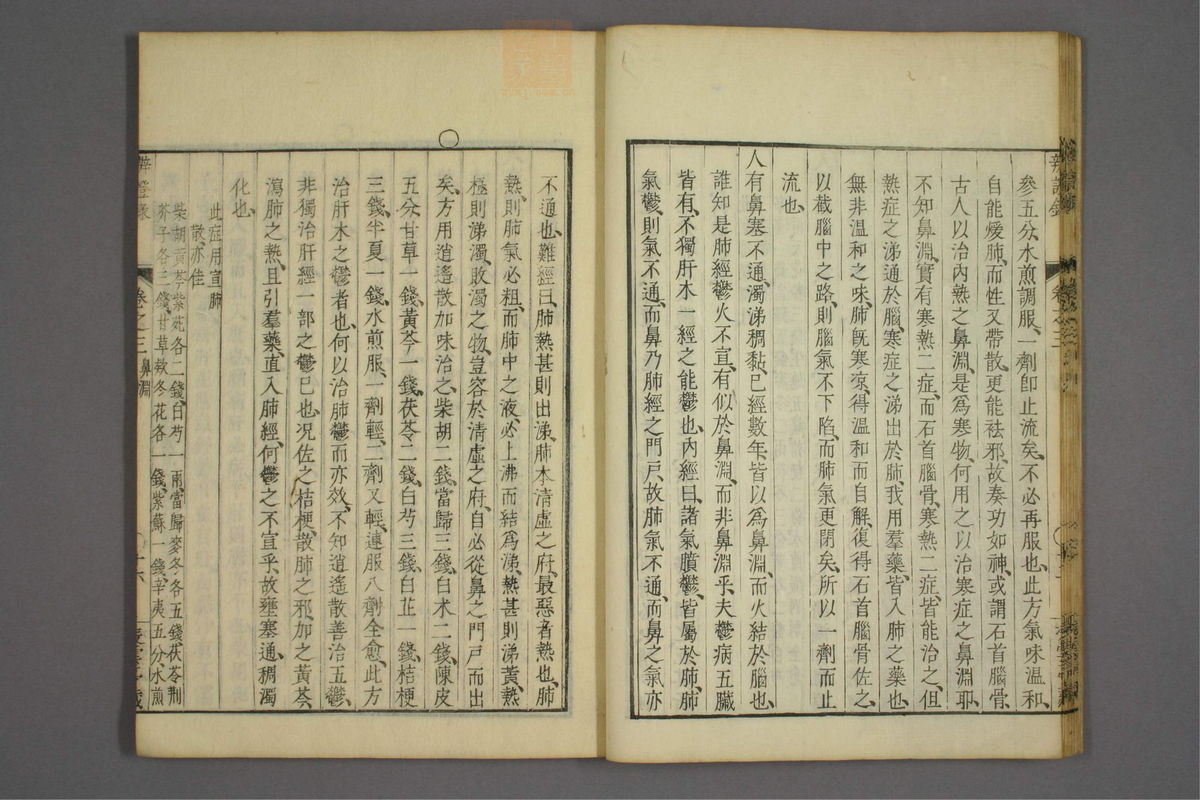 辨證錄 卷之三
參五分、水煎調服、一劑即止流矣、不必再服也、此方氣味溫和、
自能煖肺、而性又帶散、更能祛邪、故奏功如神、或謂石首腦骨、
古人以治內熱之鼻淵、是爲寒物、何用之以治寒症之鼻淵耶、
不知鼻淵、實有寒熱二症、而石首腦骨、寒熱二症、皆能治之、但
熱症之涕通於腦、寒症之涕出於肺、我用羣藥、皆入肺之藥也、
無非溫和之味、肺旣寒凉、得溫和而自解、復得石首腦骨佐之、
以截腦中之路、則腦氣不下陷、而肺氣更閉矣、所以一劑而止
流也、
人有鼻塞不通、濁涕稠黏、已經數年、皆以爲鼻淵、而火結於腦也、
誰知是肺經鬱火不宣、有似於鼻淵、而非鼻淵乎、夫鬱病五臟
皆有、不獨肝木一經之能鬱也、內經曰、諸氣膹鬱、皆屬於肺、肺
氣鬱、則氣不通、而鼻乃肺經之門戶、故肺氣不通、而鼻之氣亦
不通也、難經曰、肺熱甚則出涕、肺本清虛之府、最惡者熱也、肺
熱、則肺氣必粗、而肺中之液、必上沸而結爲涕、熱甚則涕黃、熱
極則涕濁、敗濁之物、豈容於清虛之府、自必從鼻之門戶而出
矣、方用逍遙散加味治之、柴胡二錢、當歸三錢、白术二錢、陳皮
五分、甘草一錢、黃芩一錢、茯苓二錢、白芍三錢、白芷一錢、桔梗
三錢、半夏一錢、水煎服、一劑輕、二劑又輕、連服八劑全愈、此方
治肝木之鬱者也、何以治肺鬱而亦效、不知逍遙散善治五鬱、
非獨治肝經一部之鬱已也、况佐之桔梗、散肺之邪、加之黃芩、
瀉肺之熱、且引羣藥、直入肺經、何鬱之不宣乎、故壅塞通、稠濁
化也、
此症用宣肺
散、亦佳
柴胡黃芩紫苑各二錢、白芍一兩、當歸麥冬各五錢、茯苓荆
芥子各三錢、甘草欵冬花各一錢、紫蘇一錢、辛夷五分、水煎
證錄 卷之三 鼻淵 十六